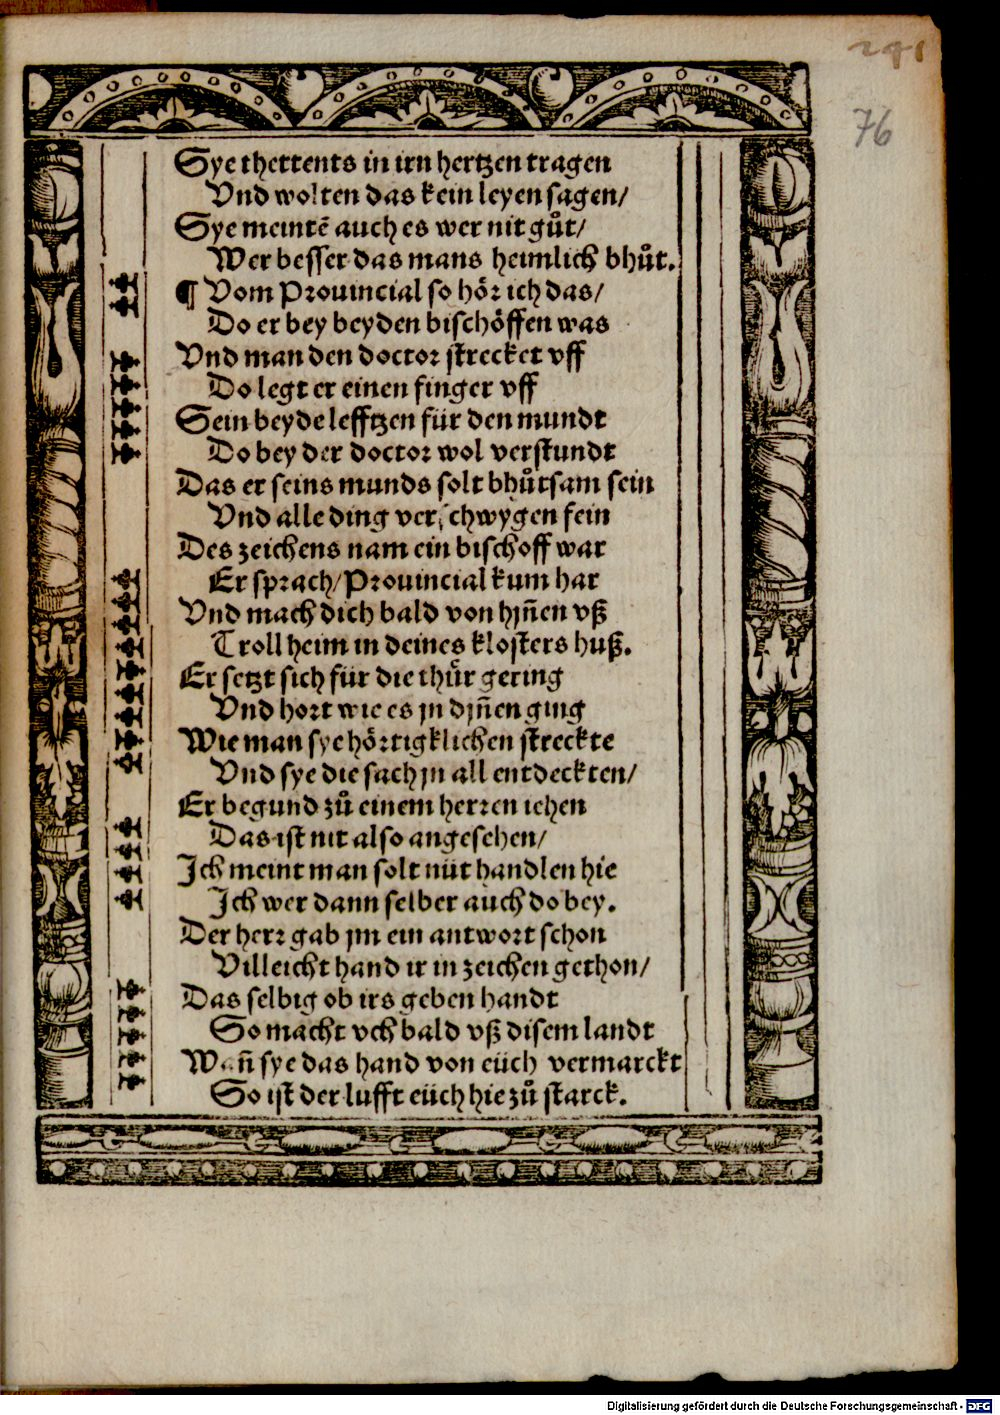 241
76
Sye thettents in irn hertzen tragen
Vnd wolten das kein leyen sagen/
Sye meintē auch es wer nit gůt/
Wer besser das mans heimlich bhůt.
¶ Vom Prouincial so hör ich das/
Do er bey beyden bischöffen was
Vnd man den doctor strecket vff
Do legt er einen finger vff
Sein beyde lefftzen für den mundt
Do bey der doctor wol verstundt
Das er seins munds solt bhůtsam sein
Vnd alle ding verschwygen fein
Des zeichens nam ein bischoff war
Er sprach/Prouincial kum har
Vnd mach dich bald von hjn̄en vß
Troll heim in deines klosters huß.
Er setzt sich für die thůr gering
Vnd hort wie es jn djn̄en ging
Wie man sye hörtigklichen streckte
Vnd sye die sach jn all entdeckten/
Er begund zů einem herren iehen
Das ist nit also angesehen/
Ich meint man solt nüt handlen hie
Ich wer dann selber auch do bey.
Der herr gab jm ein antwort schon
Villeicht hand ir in zeichen gethon/
Das selbig ob irs geben handt
So macht vch bald vß disem landt
Wan̄ sye das hand von eüch vermarckt
So ist der lufft eüch hie zů starck.
Digitalisierung gefördert durch die Deutsche Forschungsgemeinschaft - DFG